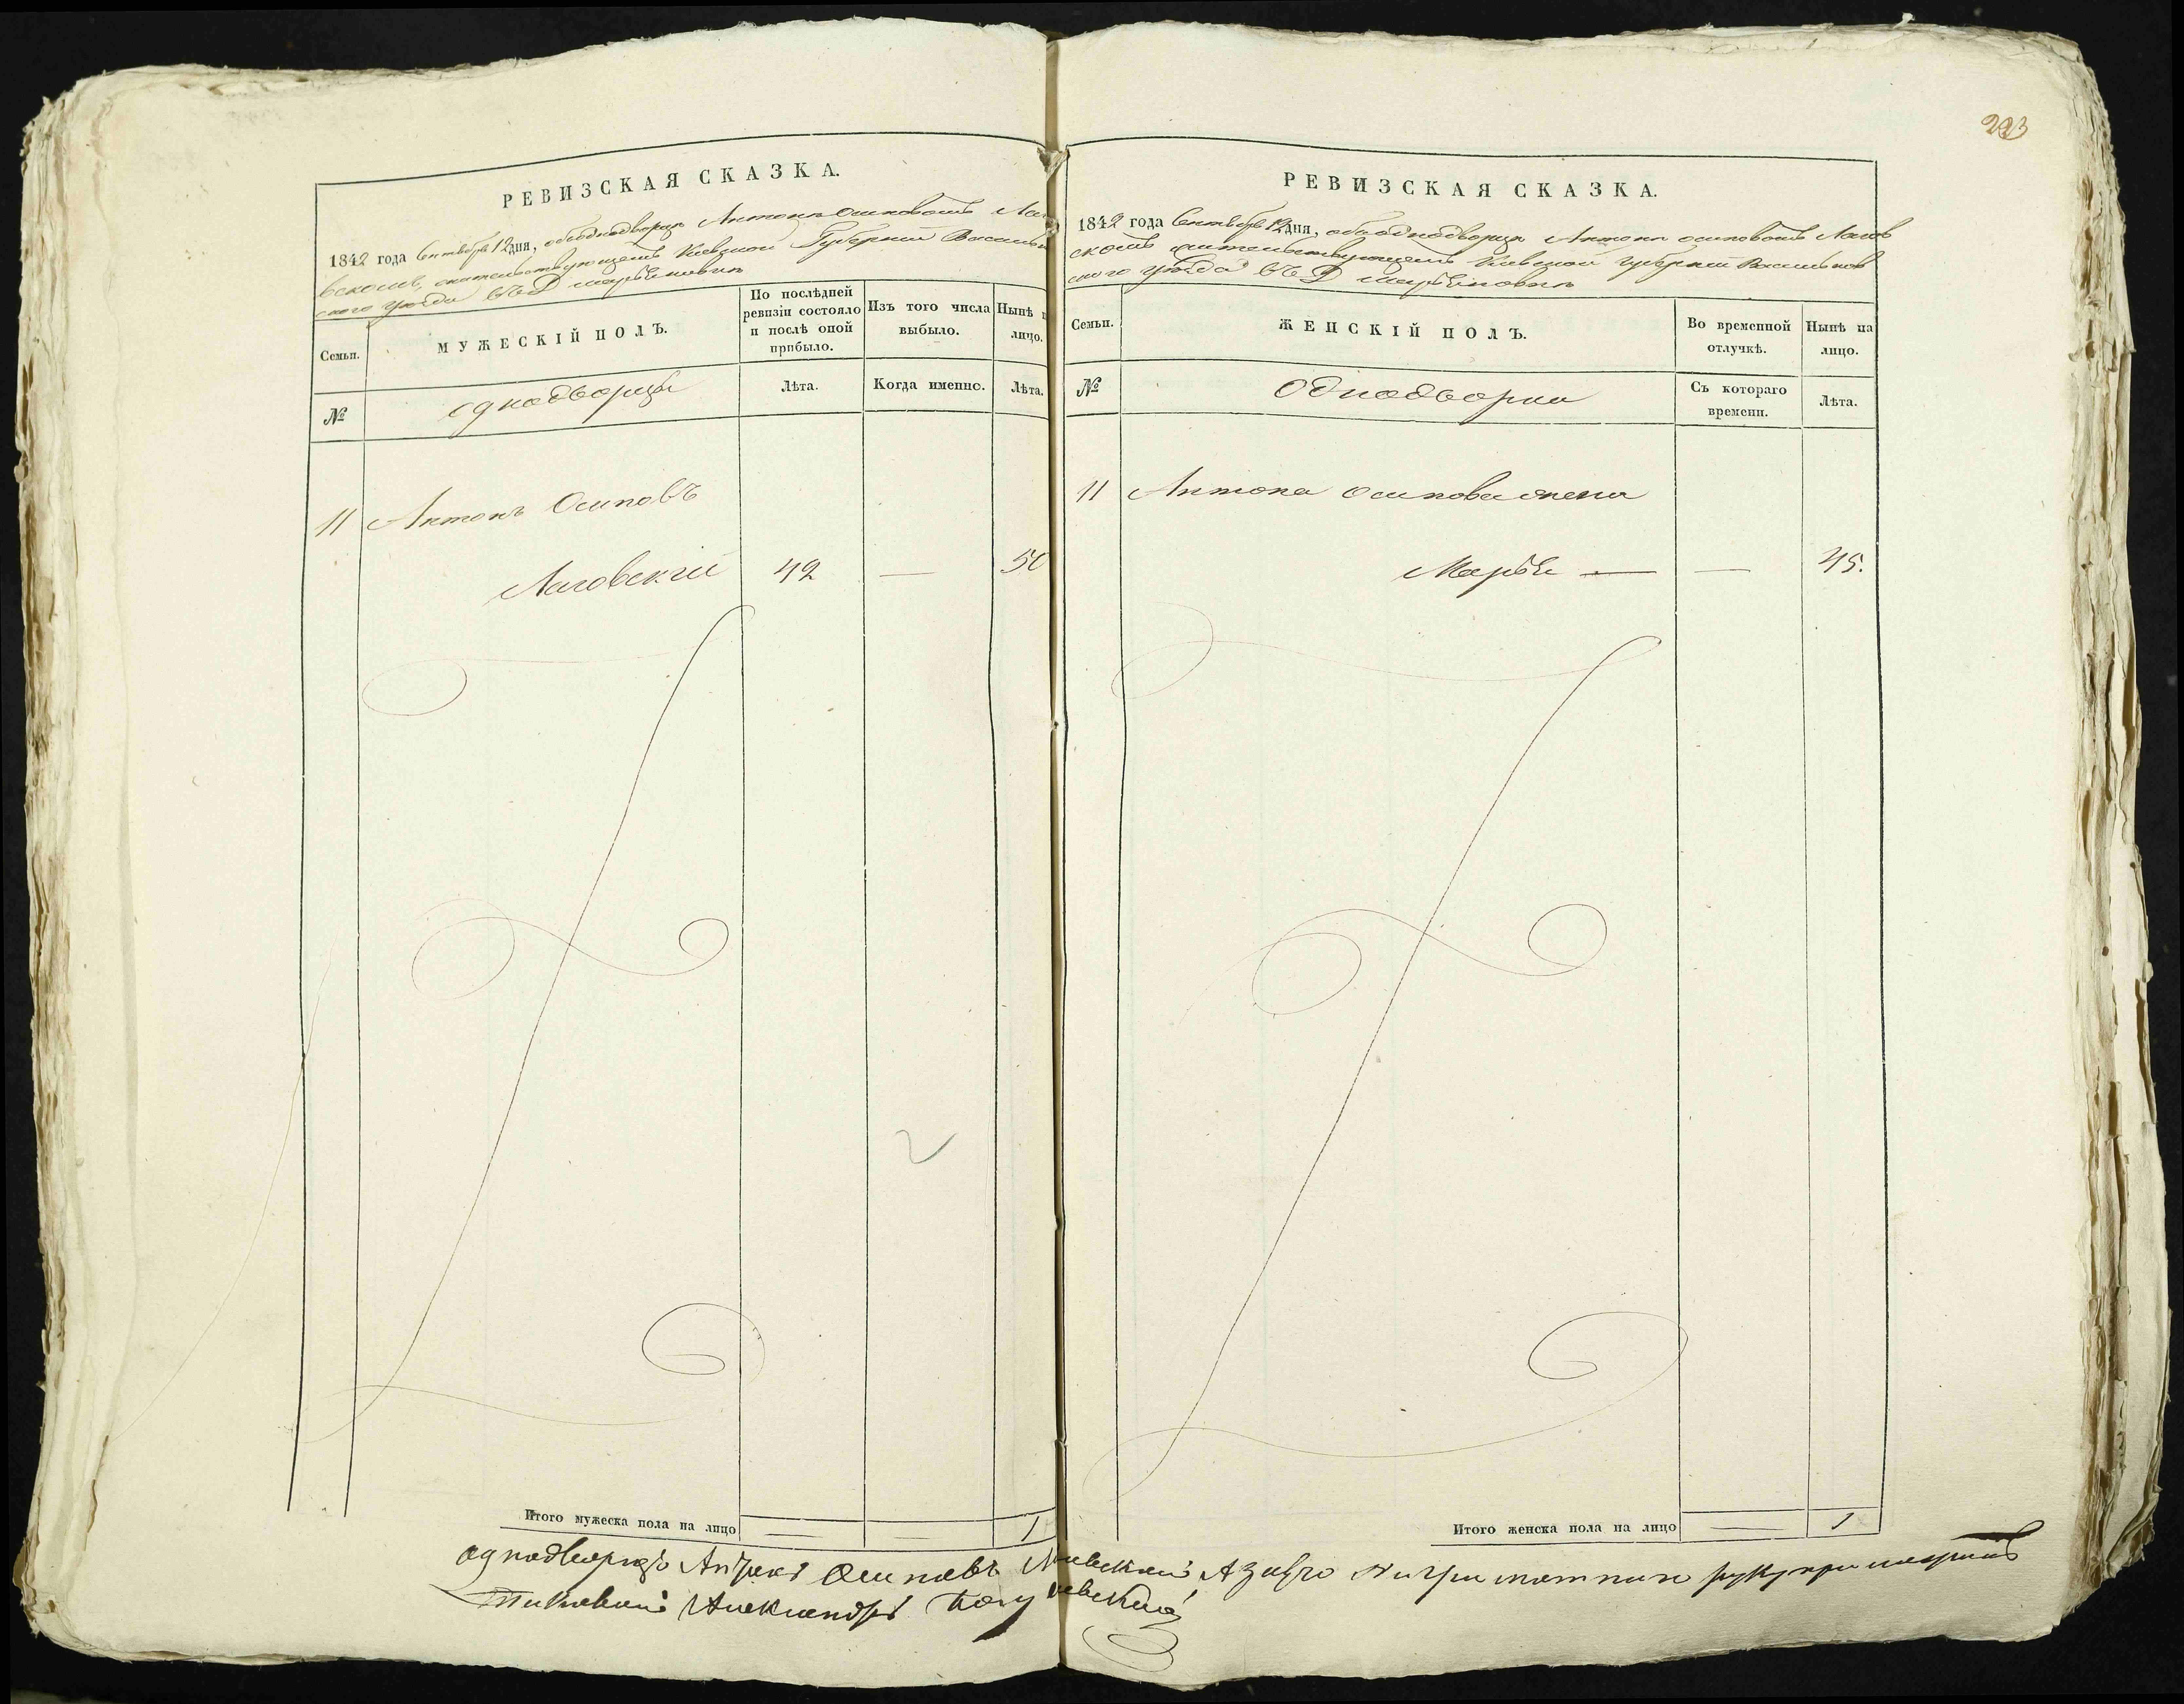 РЕВИЗСКАЯ СКАЗКА.
1842 года Сентября 12 дня, объ однодворцѣ Антонѣ Осиповомъ Лаго
вскомъ, жительствующемъ Киевской Губернии Васильков
ского уѣзда въ Д
Семьи.
МУЖЕСКІЙ ПОЛЪ.
По послѣдней ревизіи состояло и послѣ оной прибыло.
Изъ того числа выбыло.
Нынѣ на лицо.
№
однодворцы
Лѣта.
Когда именно.
Лѣта.
11 Антонъ Осиповъ
Лаговскій 42 — 50
Итого мужеска пола на лицо — — 1
223
РЕВИЗСКАЯ СКАЗКА.
1842 года Сентября 12 дня, объ однодворцѣ Антонѣ Осиповомъ Лагов
скомъ жительствующемъ Киевской Губернии Васильков
ского уѣзда въ Д
Семьи.
ЖЕНСКІЙ ПОЛЪ.
Во временной отлучкѣ.
Нынѣ на лицо.
№
Однодворки
Съ котораго времени.
Лѣта.
11 Антона Осипова жена
Марья — — 45.
Итого женска пола на лицо — 1
однодворецъ Осиповъ руку приложилъ
Александръ